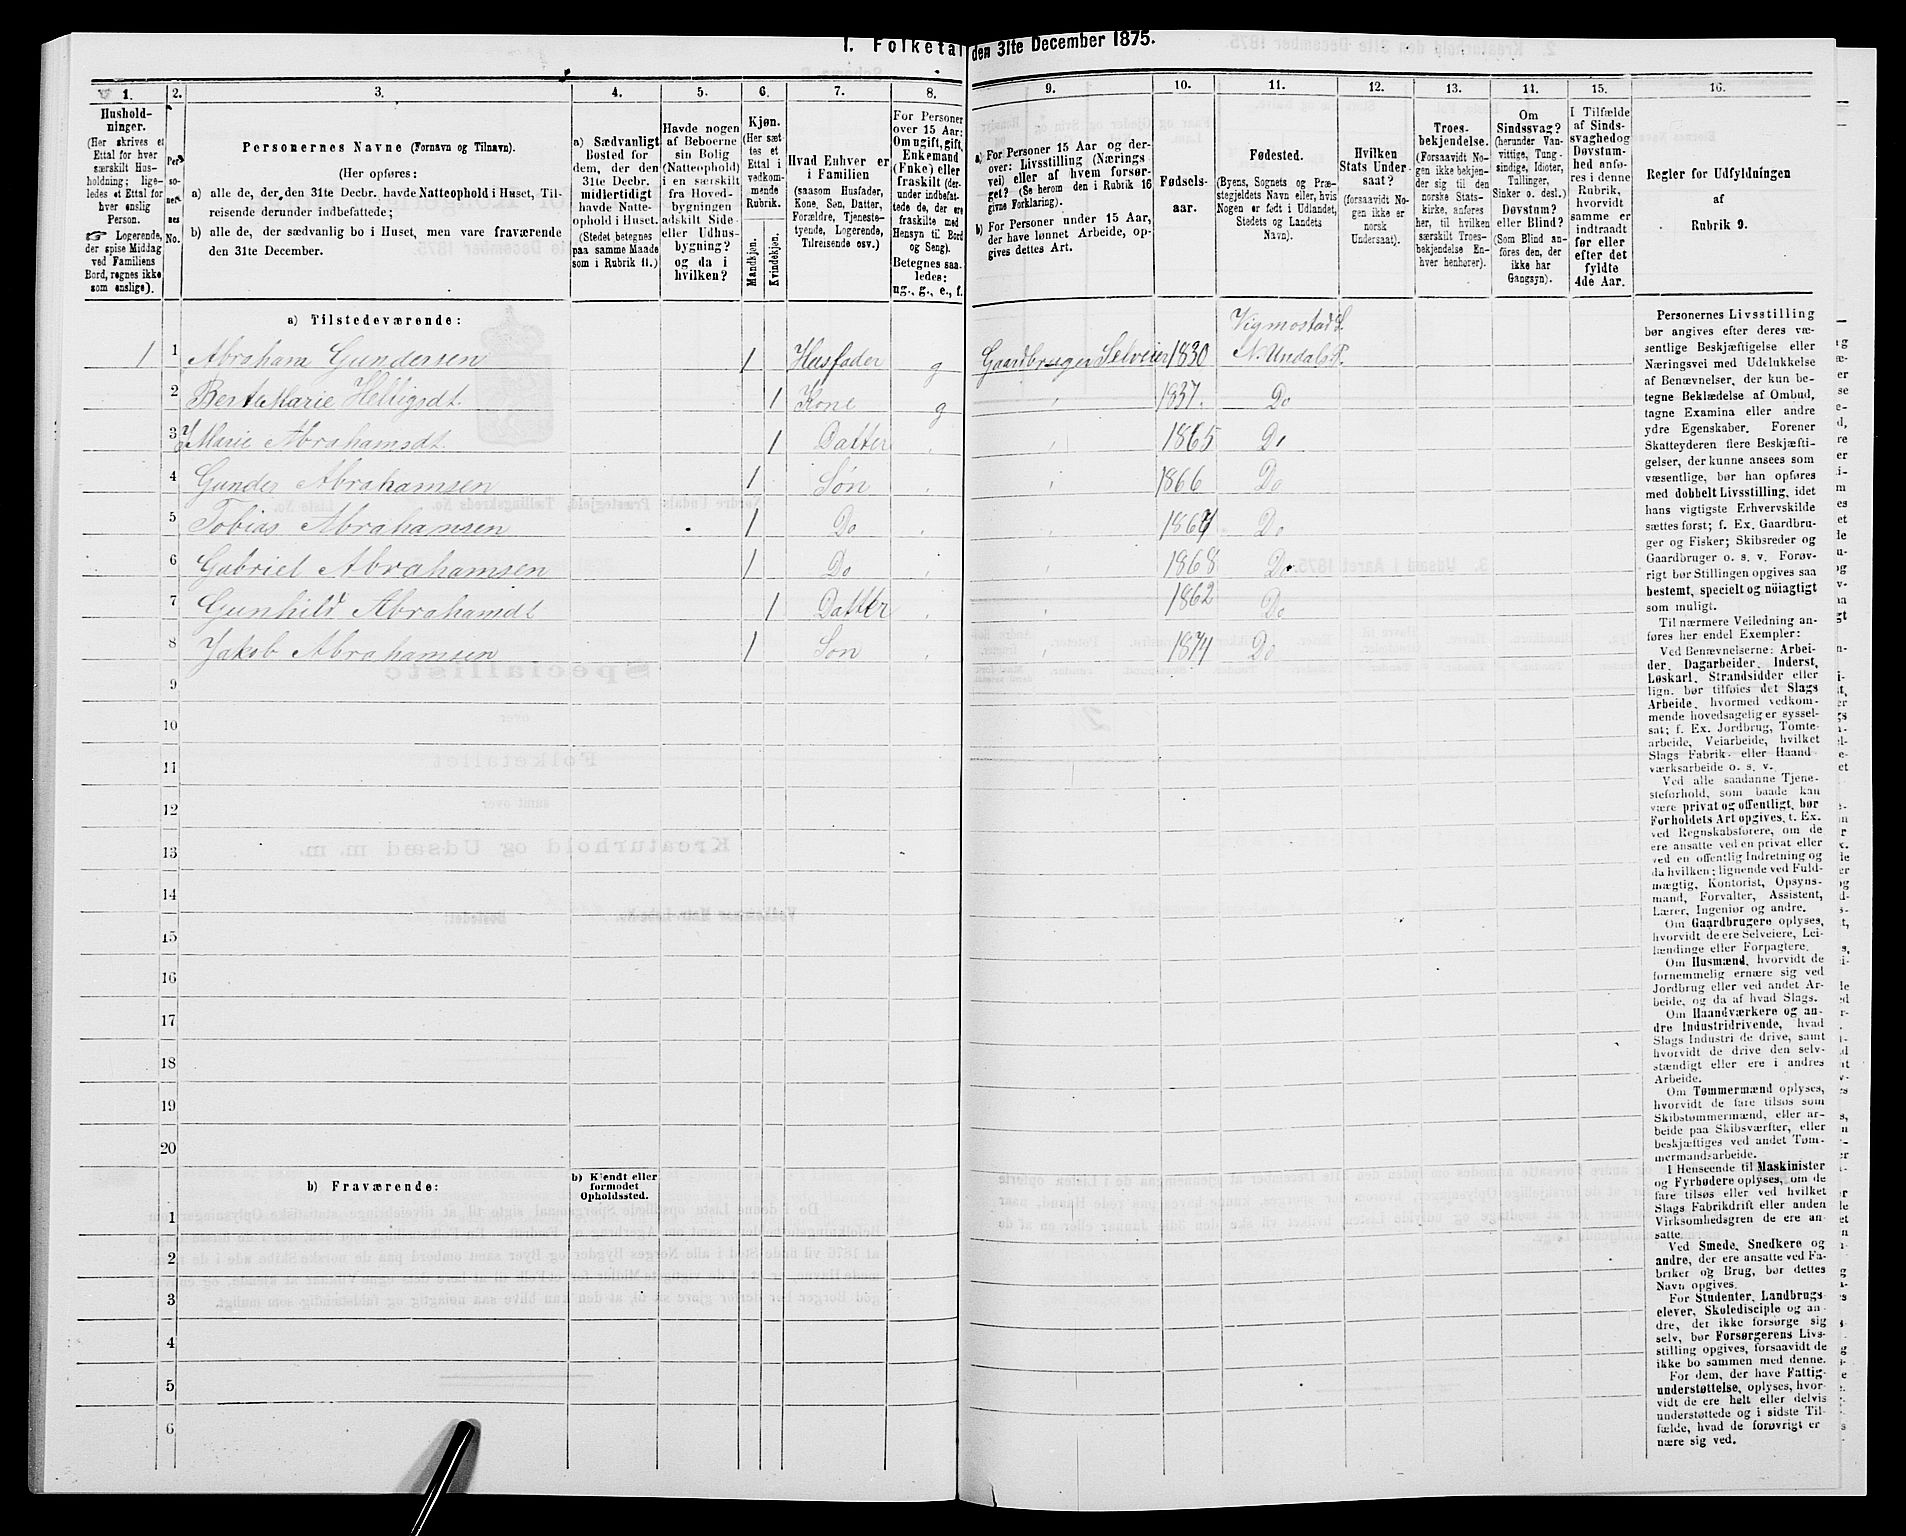 1. Folketal den 31te December 1875.
1.
Hushold-
ninger.
(Her skrives et
Ettal for hver
særskilt Hus-
holdning; lige-
ledes et Ettal for
hver enslig
Person.
☞ Logerende,
der spise Middag
ved Familiens
Bord, regnes ikke
som enslige).
2.
Per-
so-
ner-
nes
No.
3.
Personernes Navne (Fornavn og Tilnavn).
(Her opføres:
a) alle de, der den 31te Decbr. havde Natteophold i Huset, Til-
reisende derunder indbefattede;
b) alle de, der sædvanlig bo i Huset, men vare fraværende
den 31te December.
4.
a) Sædvanligt
Bosted for
dem, der den
31te Decbr.
midlertidigt
havde Natte-
ophold i Huset.
(Stedet betegnes
paa samme Maade
som i Rubrik 11.)
5.
Havde nogen
af Beboerne
sin Bolig
(Natteophold)
i en særskilt
fra Hoved-
bygningen
adskilt Side-
eller Udhus-
bygning?
og da i
hvilken?
6.
Kjøn.
(Her sæt-
tes et
Ettal i
vedkom-
mende
Rubrik.
Mandkjøn.
Kvindekjøn.
7.
Hvad Enhver er
i Familien
(saasom Husfader,
Kone, Søn, Datter,
Forældre, Tjeneste-
tyende, Logerende,
Tilreisende osv.)
8.
For Personer
over 15 Aar:
Om ugift, gift,
Enkemand
(Enke) eller
fraskilt (der-
under indbefat-
tede de, der ere
fraskilte med
Hensyn til Bord
og Seng).
Betegnes saa-
ledes:
ug., g., e., f.
9.
a) For Personer 15 Aar og der-
over: Livsstilling (Nærings-
vei) eller af hvem forsør-
get? (Se herom den i Rubrik 16
givne Forklaring).
b) For Personer under 15 Aar,
der have lønnet Arbeide, op-
gives dettes Art.
10.
Fødsels-
aar.
11.
Fødested.
(Byens, Sognets og Præ-
stegjeldets Navn eller, hvis
Nogen er født i Udlandet,
Stedets og Landets
Navn).
12.
Hvilken
Stats Under-
saat?
(forsaavidt No-
gen ikke er
norsk
Undersaat).
13.
Troes-
bekjendelse.
(Forsaavidt No-
gen ikke bekjen-
der sig til den
norske Stats-
kirke, anføres
her, til hvilken
særskilt Troes-
bekjendelse En-
hver henhører).
14.
Om
Sindssvag?
(herunder Van-
vittige, Tung-
sindige, Idioter,
Tullinger,
Sinker o. desl.)
Døvstum?
eller Blind?
(Som Blind an-
føres den, der
ikke har
Gangsyn).
15.
I Tilfælde
af Sinds-
svaghed og
Døvstum-
hed anfø-
res i denne
Rubrik,
hvorvidt
samme er
indtraadt
før eller
efter det
fyldte
4de Aar.
16.
Regler for Udfyldningen
af
Rubrik 9.
a) Tilstedeværende:
Vigmostad S.
1 1 Abraham Gundersen 1 Husfader g Gaardbruger Selveier 1830 N. Undals P.
2 Berte Marie Helligsdt. 1 Kone g 1837. Do
3 Marie Abrahamsdt. 1 Datter 1865 Do
4 Gunder Abrahamsen 1 Søn 1866 Do
5 Tobias Abrahamsen 1 Do Do
6 Gabriel Abrahamsen 1 Do 1868 Do
7 Gunhild Abrahamdt 1 Datter 1862 Do
8 Jakob Abrahamsen 1 Søn 1874 Do
9
10
11
12
13
14
15
16
17
18
19
20
b) Fraværende:
b) Kjendt eller
formodet
Opholdssted.
1
2
3
4
5
6
Personernes Livsstilling
bør angives efter deres væ-
sentlige Beskjæftigelse eller
Næringsvei med Udelukkelse
af Benævnelser, der kun be-
tegne Beklædelse af Ombud,
tagne Examina eller andre
ydre Egenskaber. Forener
Skatteyderen flere Beskjæfti-
gelser, der kunne ansees som
væsentlige, bør han opføres
med dobbelt Livsstilling, idet
hans vigtigste Erhvervskilde
sættes først; f. Ex. Gaardbru-
ger og Fisker; Skibsreder og
Gaardbruger o. s. v. Forøv-
rigt bør Stillingen opgives saa
bestemt, specielt og nöiagtigt
som muligt.
Til nærmere Veiledning an-
føres her endel Exempler:
Ved Benævnelserne: Arbei-
der, Dagarbeider, Inderst,
Løskarl, Strandsidder eller
lign. bør tilføies det Slags
Arbeide, hvormed vedkom-
mende hovedsagelig er syssel-
sat; f. Ex. Jordbrug, Tomte-
arbeide, Veiarbeide, hvilket
Slags Fabrik- eller Haand-
værksarbeide o. s. v.
Ved alle saadanne Tjene-
steforhold, som baade kan
være privat og offentligt, bør
Forholdets Art opgives, t. Ex.
ved Regnskabsførere, om de
ere ansatte ved en privat eller
ved en offentlig Indretning og
da hvilken; lignende ved Fuld-
mægtig, Kontorist, Opsyns-
mand, Forvalter, Assistent,
Lærer, Ingeniør og andre.
Om Gaardbrugere oplyses,
hvorvidt de ere Selveiere, Lei-
lændinge eller Forpagtere.
Om Husmænd, hvorvidt de
fornemmelig ernære sig ved
Jordbrug eller ved andet Ar-
beide, og da af hvad Slags.
Om Haandværkere og an-
dre Industridrivende, hvad
Slags Industri de drive, samt
hvorvidt de drive den selv-
stændigt eller ere i andres
Arbeide.
Om Tømmermænd oplyses,
hvorvidt de fare tilsøs som
Skibstømmermænd, eller ar-
beide paa Skibsværfter, eller
beskjæftiges ved andet Tøm-
mermandsarbeide.
I Henseende til Maskinister
og Fyrbødere oplyses, om de
fare tilsøs eller ved hvilket
Slags Fabrikdrift eller anden
Virksomhedsgren de ere an-
satte.
Ved Smede, Snedkere og
andre, der ere ansatte ved Fa-
briker og Brug, bør dettes
Navn opgives.
For Studenter, Landbrugs-
elever, Skoledisciple og an-
dre, der ikke forsørge sig
selv, bør Forsørgerens Livs-
stilling opgives, forsaavidt de
ikke bo sammen med denne.
For dem, der have Fattig-
understøttelse, oplyses, hvor-
vidt de ere helt eller delvis
understøttede og i sidste Til-
fælde, hvad de forøvrigt er-
nære sig ved.